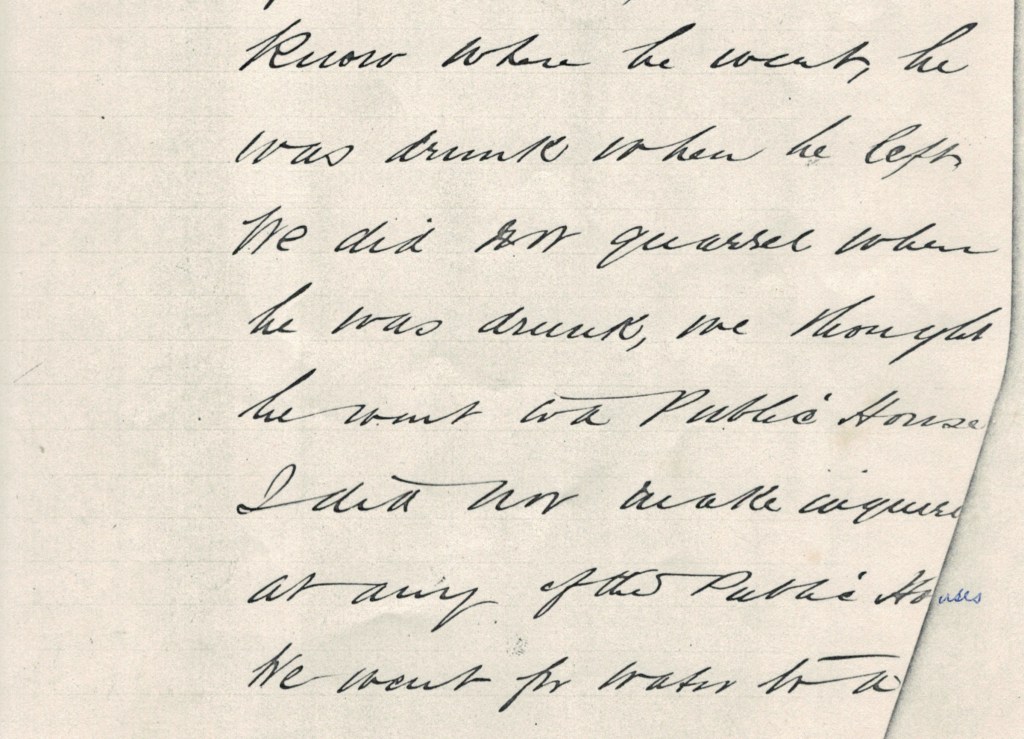 know where he went, he
was drunk when he left.
We did not quarrel when
he was drunk, we thought
he went to a Public House
I did not make inquire
at any of the Public Houses
We went for water to a